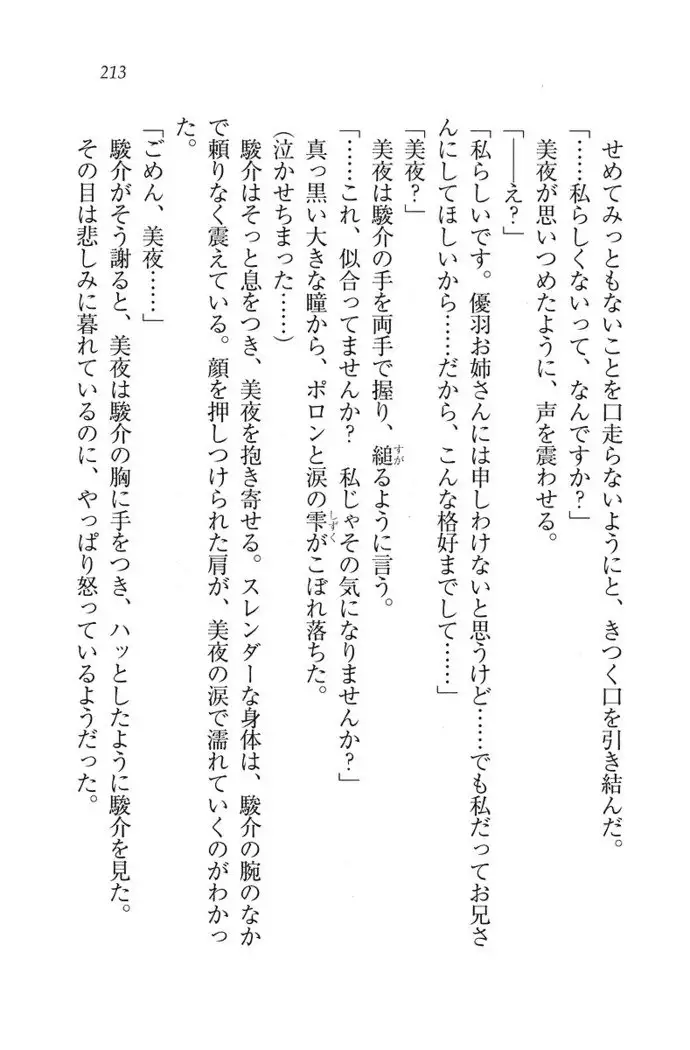 213
せめてみっともないことを口走らないようにと、きつく口を引き結んだ。
「……私らしくないって、なんですか?」
美夜が思いつめたように、声を震わせる。
「――え?」
「私らしいです。優羽お姉さんには申しわけないと思うけど……でも私だってお兄さ
んにしてほしいから……だから、こんな格好までして……」
「美夜?」
美夜は駿介の手を両手で握り、縋るように言う。
「……これ、似合ってませんか? 私じゃその気になりませんか?」
真っ黒い大きな瞳から、ポロンと涙の雫がこぼれ落ちた。
(泣かせちまった……)
駿介はそっと息をつき、美夜を抱き寄せる。スレンダーな身体は、駿介の腕のなか
で頼りなく震えている。顔を押しつけられた肩が、美夜の涙で濡れていくのがわかっ
た。
「ごめん、美夜……」
駿介がそう謝ると、美夜は駿介の胸に手をつき、ハッとしたように駿介を見た。
その目は悲しみに暮れているのに、やっぱり怒っているようだった。